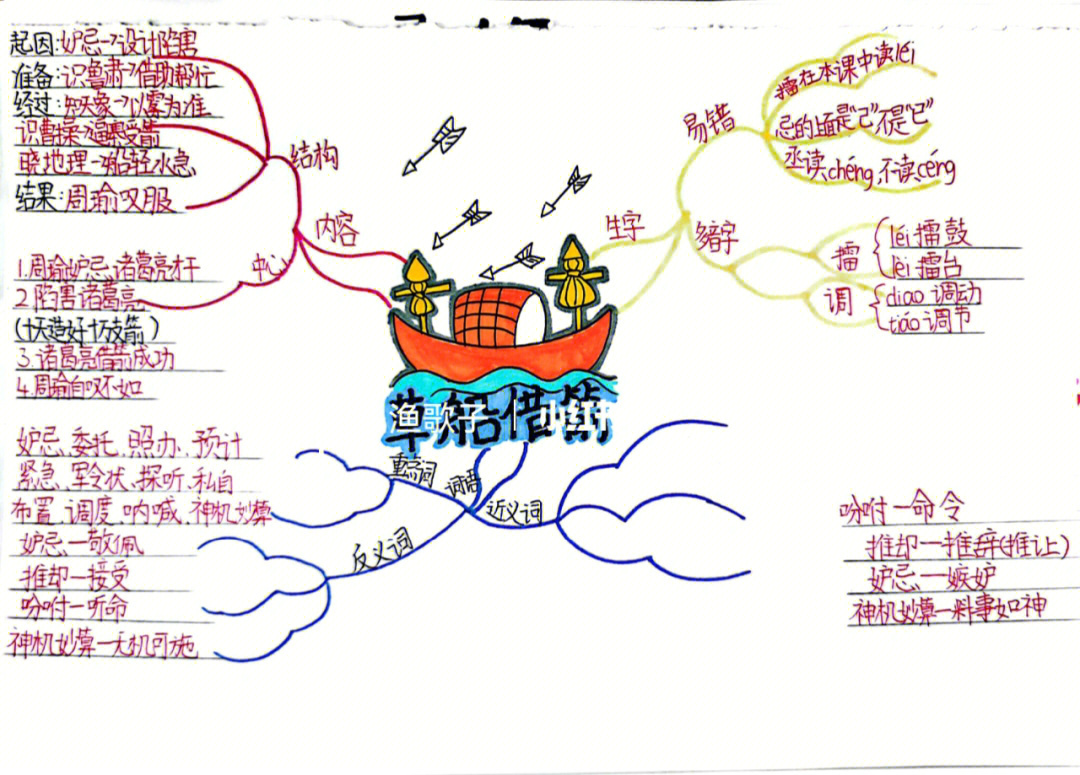 起因:妒忌→设计陷害
准备:识鲁肃→借助帮忙
经过:知天象→以雾为准
识曹操→逼擂受箭
晓地理→船轻水急
结果:周瑜叹服
结构
内容
中心
1.周瑜妒忌诸葛亮才干
2.陷害诸葛亮
(十天造好十万支箭)
3.诸葛亮借箭成功
4.周瑜自叹不如
易错
擂在本课中读léi
忌的上面是"己"不是"已"
丞读chéng,不读céng
生字
多音字
擂
léi 擂鼓
lèi 擂台
调
diao 调动
tiáo 调节
草船借箭
渔歌子
小红书
重点词
词语
近义词
反义词
妒忌、委托、照办、预计
紧急、军令状、探听、私自
布置、调度、呐喊、神机妙算
妒忌—敬佩
推却—接受
吩咐—听命
神机妙算—无机可施
吩咐—命令
推却—推辞(推让)
妒忌—嫉妒
神机妙算—料事如神